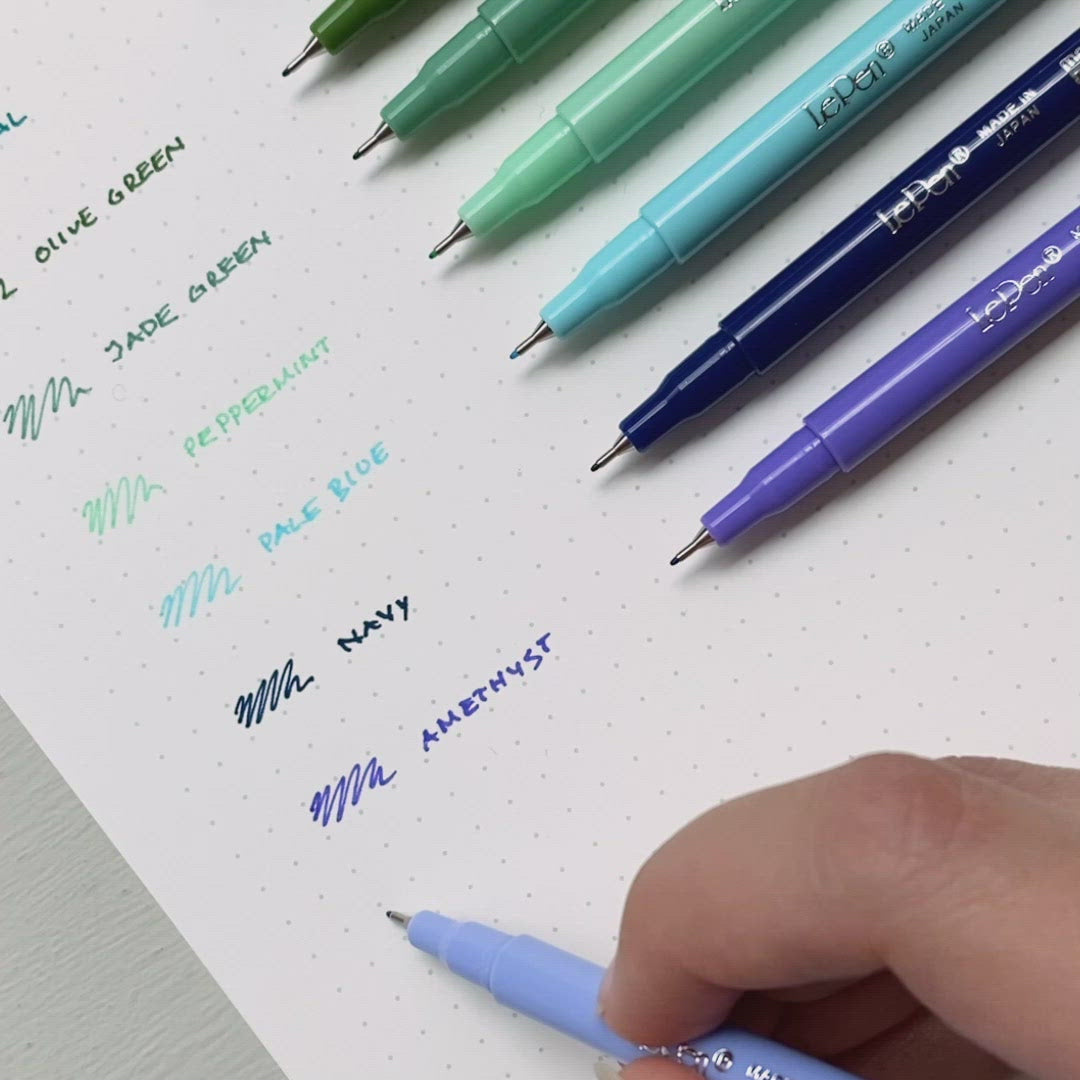 OLIVE GREEN
JADE GREEN
PEPPERMINT
PALE BLUE
NAVY
AMETHYST
LePen® MADE IN JAPAN
LePen® MADE IN JAPAN
LePen®